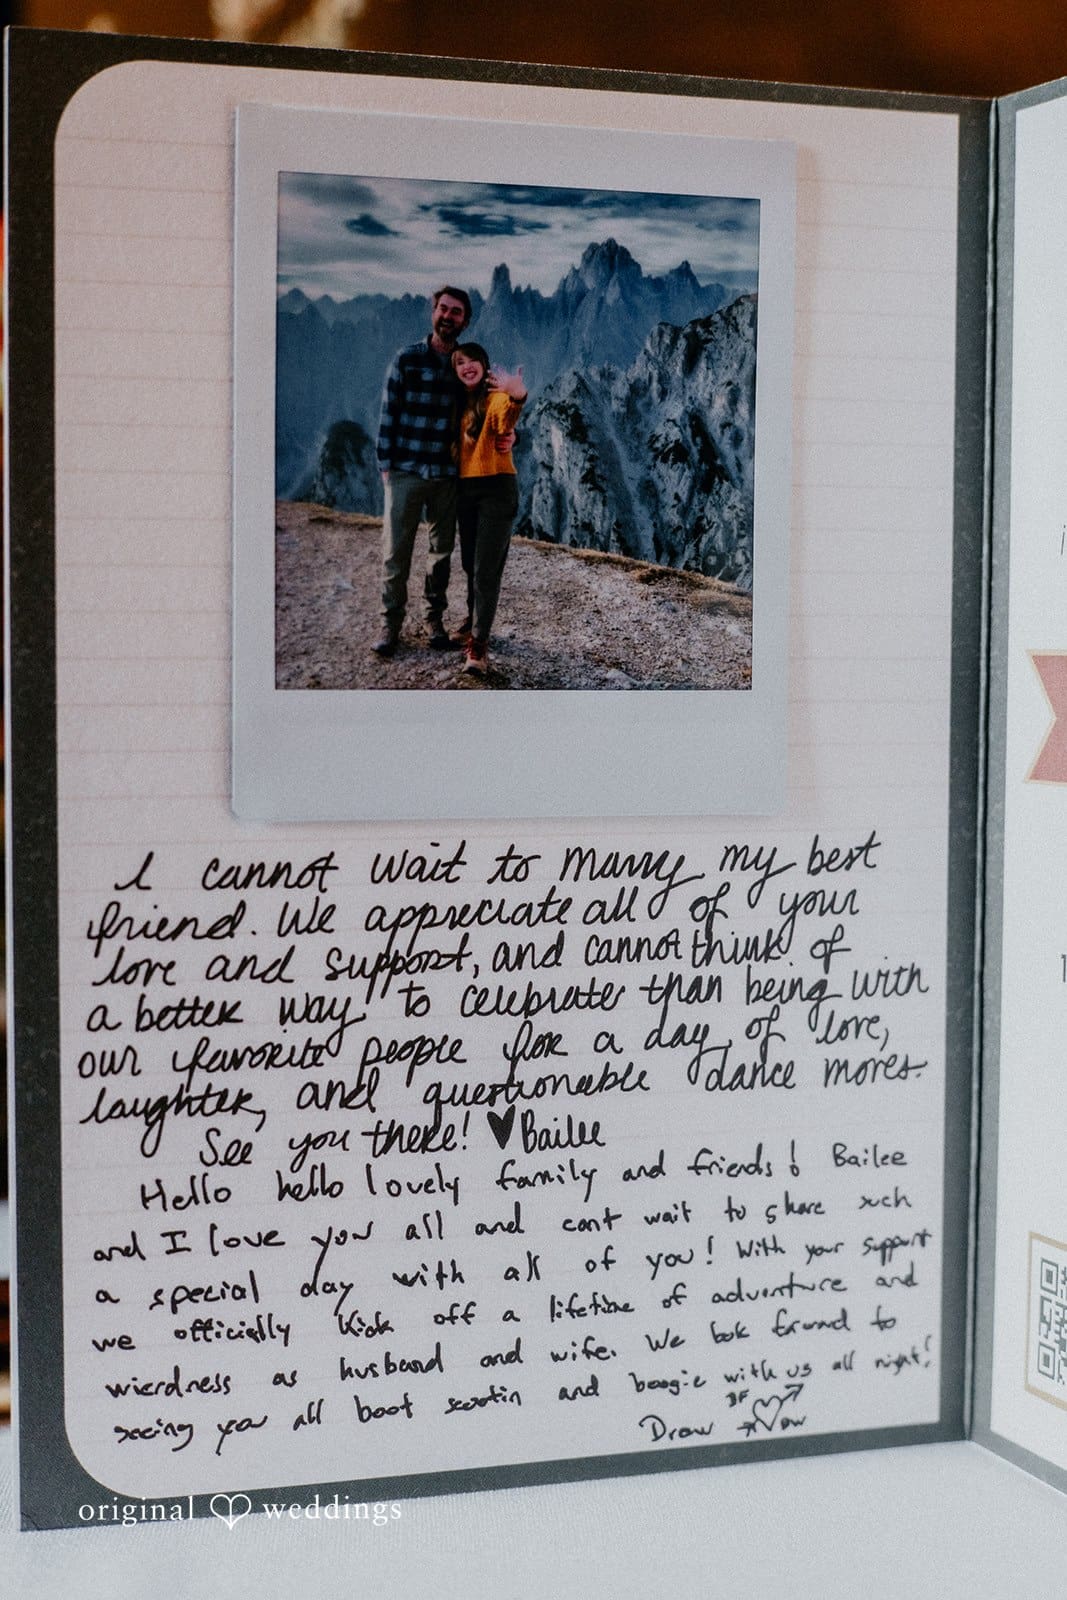 I cannot wait to marry my best
friend. We appreciate all of your
love and support, and cannot think of
a better way to celebrate than being with
our favorite people for a day of love,
laughter, and questionable dance moves.
See you there! ♥Bailee
Hello hello lovely family and friends! Bailee
and I love you all and cant wait to share such
a special day with all of you! With your support
we officially kick off a lifetime of adventure and
wierdness as husband and wife. We look forward to
seeing you all boot scootin and boogie with us all night!
Drew
original weddings